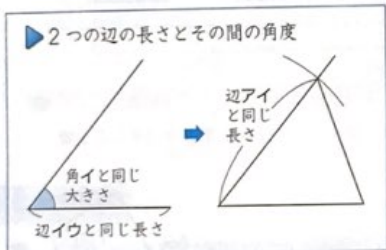 ▶2つの辺の長さとその間の角度
角イと同じ
大きさ
辺イウと同じ長さ
辺アイ
と同じ
長さ